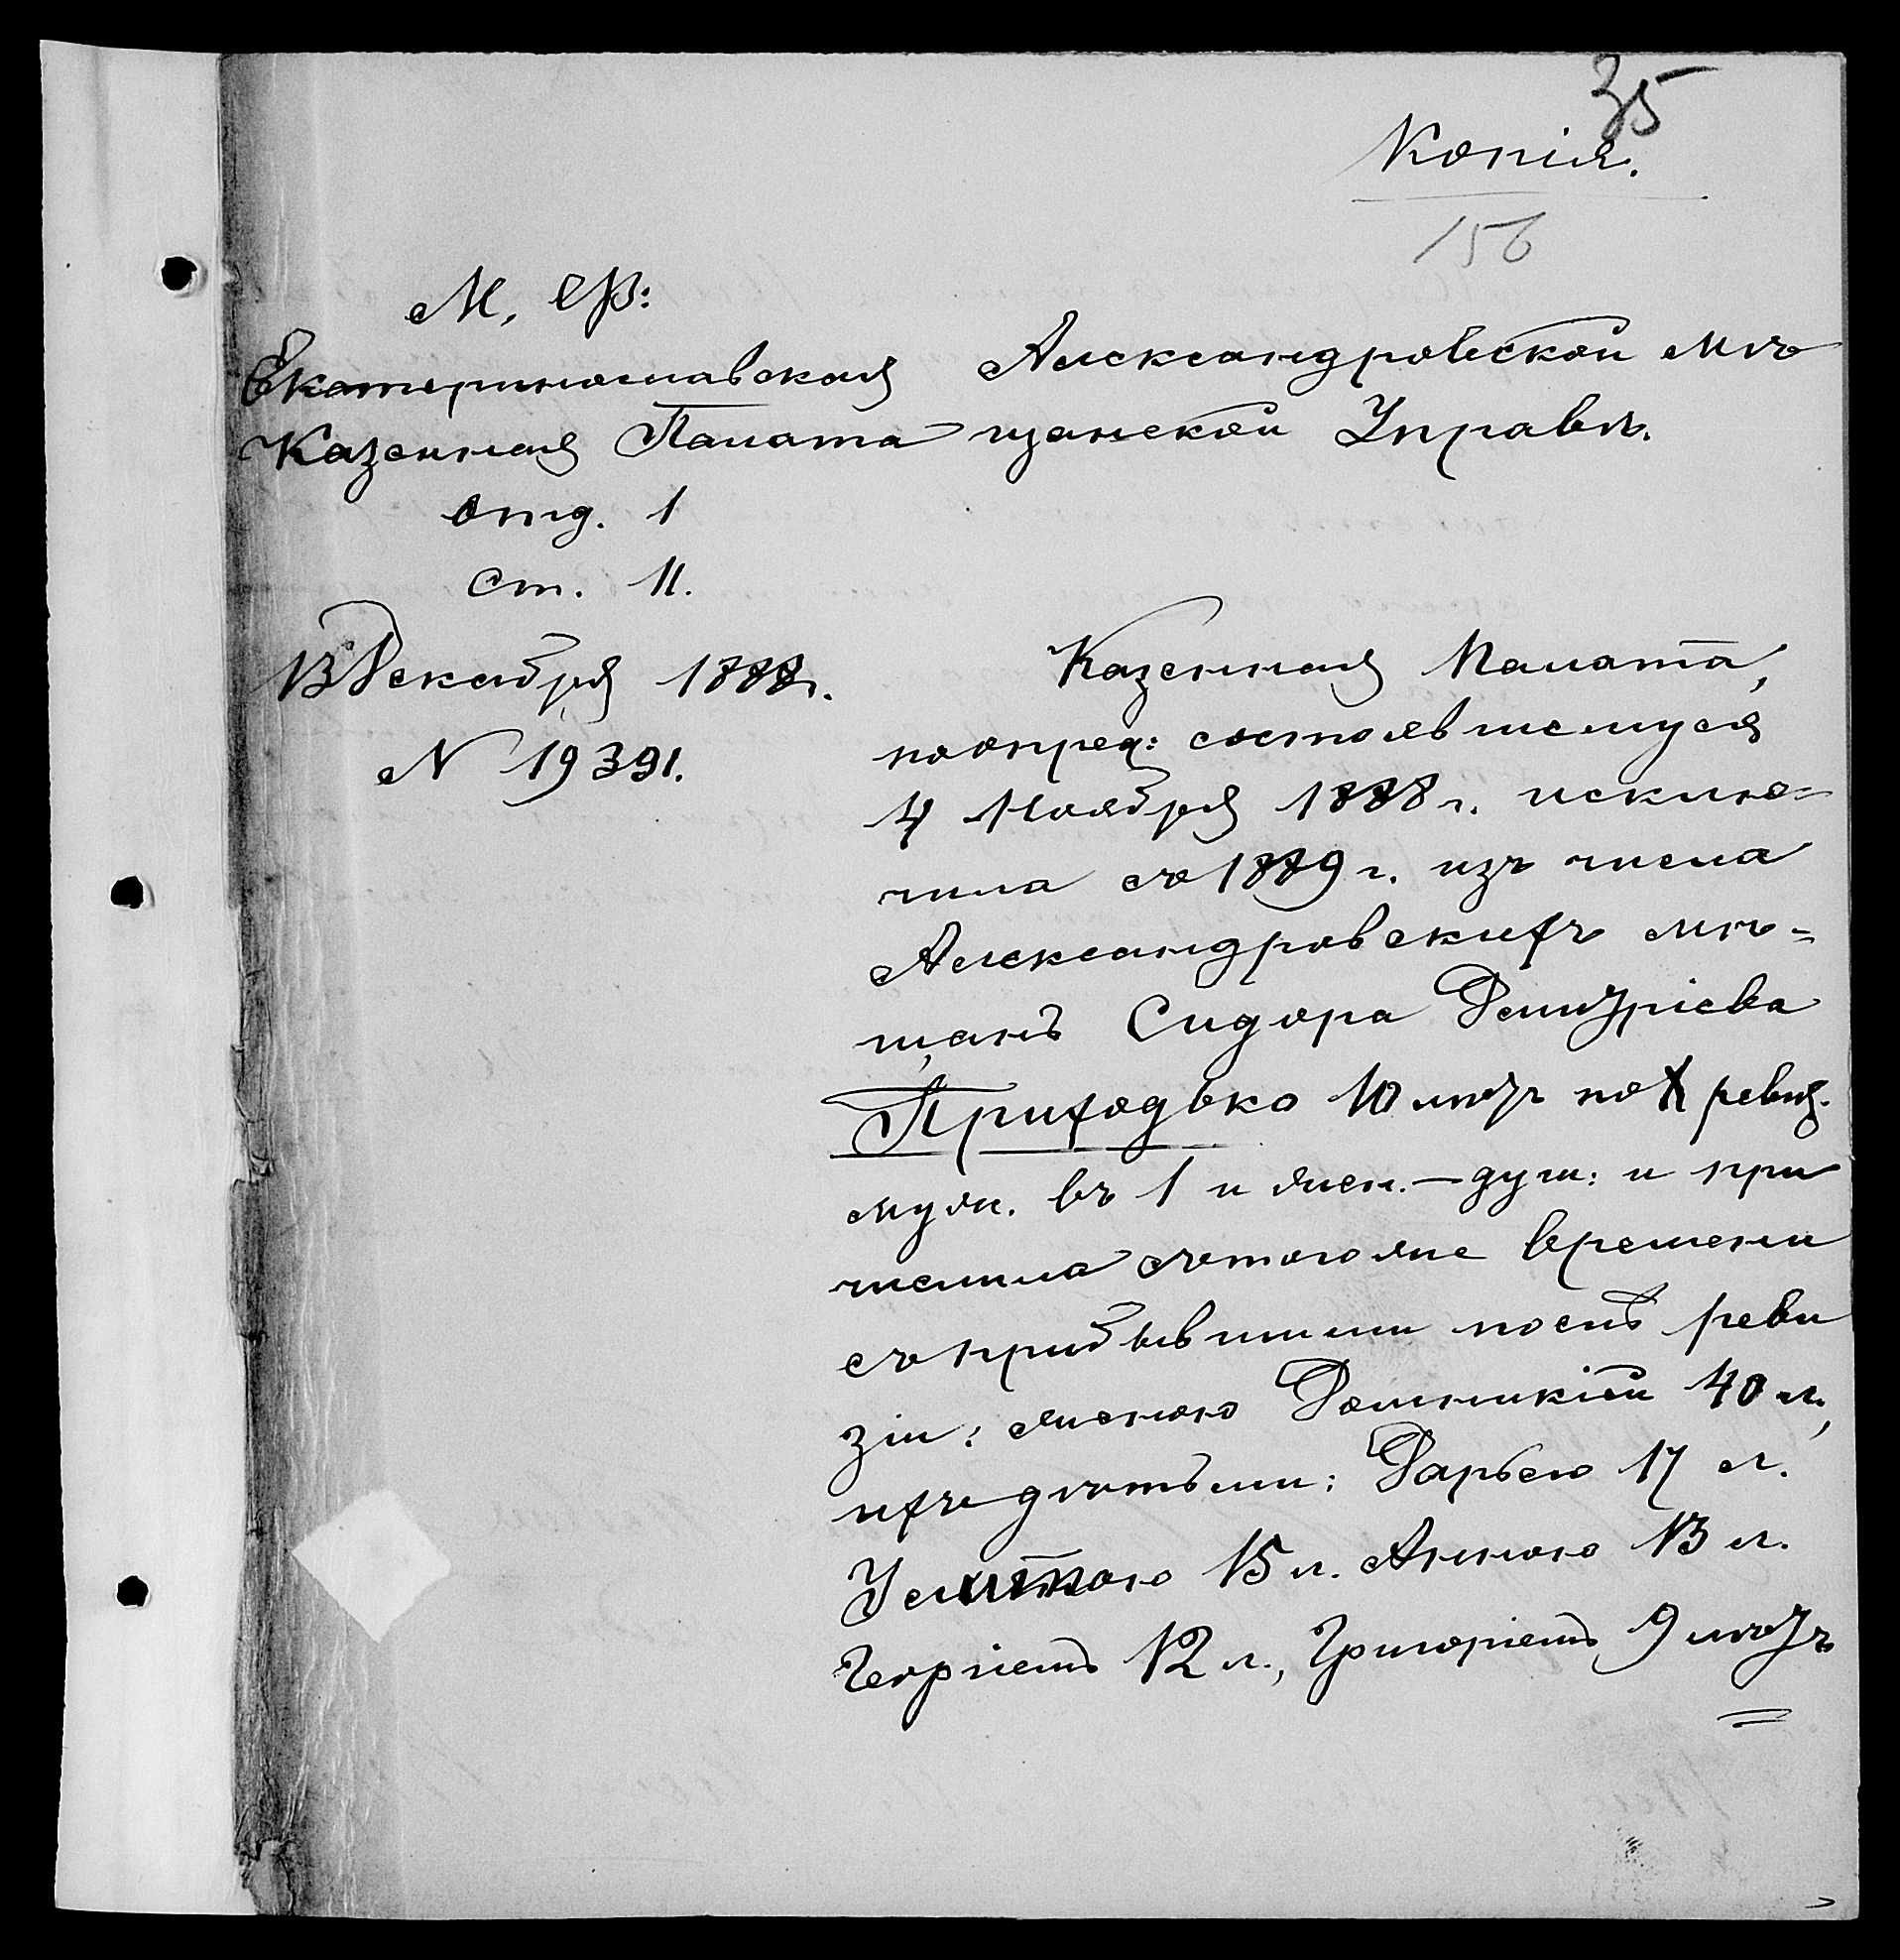 35
Копія.
156
М. Ф:
Екатеринославская
Казенная Палата
отд. 1
ст. 11.
13 Декабря 1888 г.
N 19391.
Александровской мѣ
щанской Управѣ.
Казенная Палата,
по опред: состоявшемуся
4 Ноября 1888 г. исклю=
чила съ 1889 г. изъ числа
Александровскихъ мѣ=
щанъ Сидора Дмитріева
Приходько 10 лѣтъ по X ревиз.
муж. въ 1 и жен. — душ: и при
числила съ того же времени
съ прибывшими послѣ реви
зіи: женою Домникіей 40 л.,
ихъ дѣтьми: Дарьею 17 л.
15 л. Анною 13 л.
Георгіемъ 12 л., Григоріемъ 9 лѣтъ